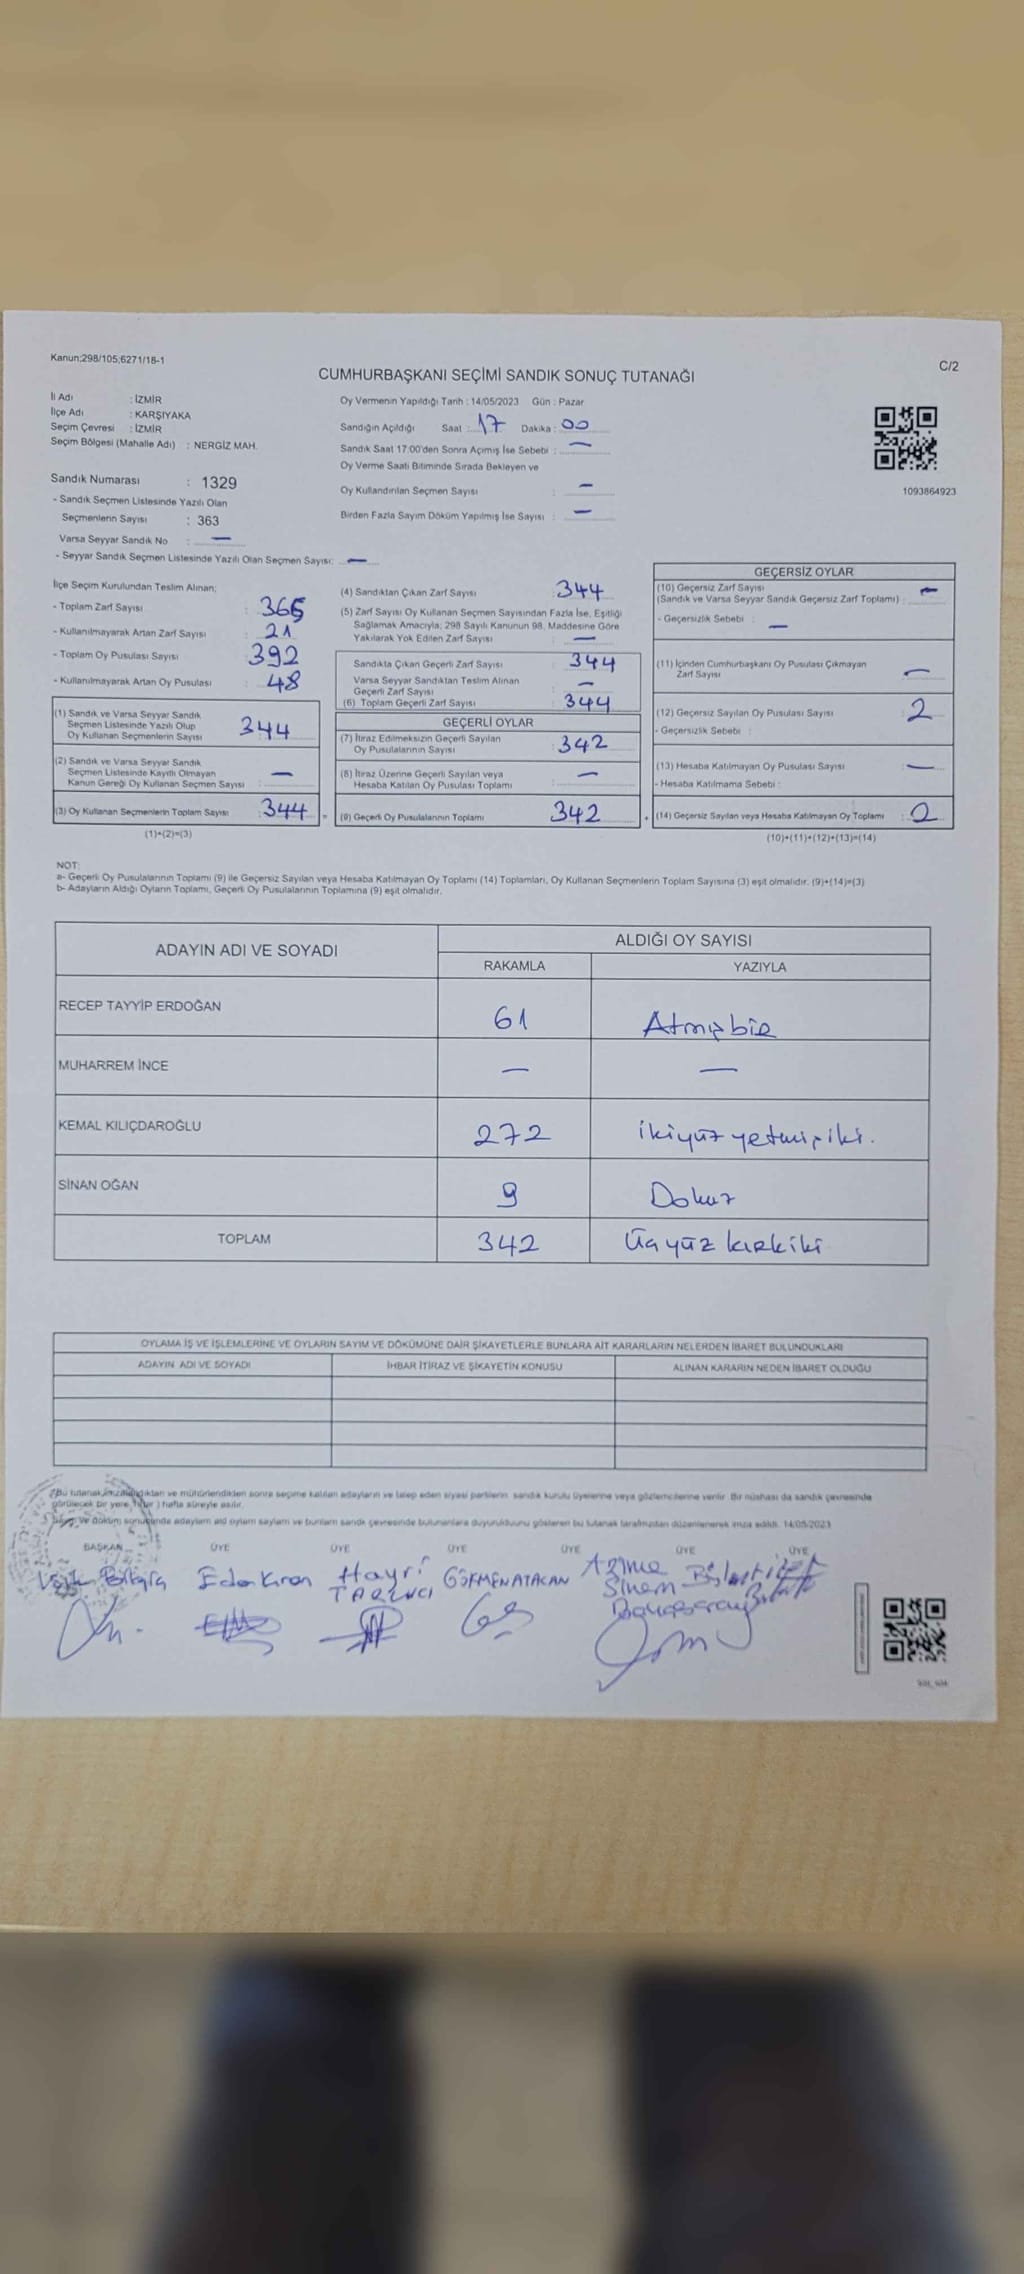 Kanun:298/105;6271/18-1
C/2
CUMHURBAŞKANI SEÇİMİ SANDIK SONUÇ TUTANAĞI
İl Adı : İZMİR
İlçe Adı : KARŞIYAKA
Seçim Çevresi : İZMİR
Seçim Bölgesi (Mahalle Adı) : NERGİZ MAH.
Sandık Numarası : 1329
- Sandık Seçmen Listesinde Yazılı Olan
Seçmenlerin Sayısı : 363
Varsa Seyyar Sandık No : —
- Seyyar Sandık Seçmen Listesinde Yazılı Olan Seçmen Sayısı: —
Oy Vermenin Yapıldığı Tarih : 14/05/2023 Gün : Pazar
Sandığın Açıldığı Saat : 17 Dakika : 00
Sandık Saat 17:00'den Sonra Açımış İse Sebebi : —
Oy Verme Saati Bitiminde Sırada Bekleyen ve
Oy Kullandırılan Seçmen Sayısı : —
Birden Fazla Sayım Döküm Yapılmış İse Sayısı : —
1093864923
İlçe Seçim Kurulundan Teslim Alınan;
- Toplam Zarf Sayısı : 365
- Kullanılmayarak Artan Zarf Sayısı : 21
- Toplam Oy Pusulası Sayısı : 392
- Kullanılmayarak Artan Oy Pusulası : 48
(1) Sandık ve Varsa Seyyar Sandık
Seçmen Listesinde Yazılı Olup
Oy Kullanan Seçmenlerin Sayısı 344
(2) Sandık ve Varsa Seyyar Sandık
Seçmen Listesinde Kayıtlı Olmayan
Kanun Gereği Oy Kullanan Seçmen Sayısı : —
(3) Oy Kullanan Seçmenlerin Toplam Sayısı : 344
(1)+(2)=(3)
(4) Sandıktan Çıkan Zarf Sayısı : 344
(5) Zarf Sayısı Oy Kullanan Seçmen Sayısından Fazla İse, Eşitliği
Sağlamak Amacıyla; 298 Sayılı Kanunun 98. Maddesine Göre
Yakılarak Yok Edilen Zarf Sayısı : —
Sandıkta Çıkan Geçerli Zarf Sayısı : 344
Varsa Seyyar Sandıktan Teslim Alınan
Geçerli Zarf Sayısı : —
(6) Toplam Geçerli Zarf Sayısı : 344
GEÇERLİ OYLAR
(7) İtiraz Edilmeksizin Geçerli Sayılan
Oy Pusulalarının Sayısı : 342
(8) İtiraz Üzerine Geçerli Sayılan veya
Hesaba Katılan Oy Pusulası Toplamı : —
(9) Geçerli Oy Pusulalarının Toplamı : 342
GEÇERSİZ OYLAR
(10) Geçersiz Zarf Sayısı
(Sandık ve Varsa Seyyar Sandık Geçersiz Zarf Toplamı) : —
- Geçersizlik Sebebi : —
(11) İçinden Cumhurbaşkanı Oy Pusulası Çıkmayan
Zarf Sayısı : —
(12) Geçersiz Sayılan Oy Pusulası Sayısı : 2
- Geçersizlik Sebebi :
(13) Hesaba Katılmayan Oy Pusulası Sayısı : —
- Hesaba Katılmama Sebebi :
(14) Geçersiz Sayılan veya Hesaba Katılmayan Oy Toplamı : 2
(10)+(11)+(12)+(13)=(14)
NOT:
a- Geçerli Oy Pusulalarının Toplamı (9) ile Geçersiz Sayılan veya Hesaba Katılmayan Oy Toplamı (14) Toplamları, Oy Kullanan Seçmenlerin Toplam Sayısına (3) eşit olmalıdır. (9)+(14)=(3)
b- Adayların Aldığı Oyların Toplamı, Geçerli Oy Pusulalarının Toplamına (9) eşit olmalıdır.
ADAYIN ADI VE SOYADI ALDIĞI OY SAYISI
RAKAMLA YAZIYLA
RECEP TAYYİP ERDOĞAN 61 Atmışbir
MUHARREM İNCE — —
KEMAL KILIÇDAROĞLU 272 ikiyüz yetmişiki.
SİNAN OĞAN 9 Dokuz
TOPLAM 342 Üçyüz kırkiki
OYLAMA İŞ VE İŞLEMLERİNE VE OYLARIN SAYIM VE DÖKÜMÜNE DAİR ŞİKAYETLERLE BUNLARA AİT KARARLARIN NELERDEN İBARET BULUNDUKLARI
ADAYIN ADI VE SOYADI İHBAR İTİRAZ VE ŞİKAYETİN KONUSU ALINAN KARARIN NEDEN İBARET OLDUĞU
Bu tutanak imzalandıktan ve mühürlendikten sonra seçime katılan adayların ve talep eden siyasi partilerin sandık kurulu üyelerine veya gözlemcilerine verilir. Bir nüshası da sandık çevresinde
görülecek bir yere 1 (bir) hafta süreyle asılır.
14/05/2023
BAŞKAN ÜYE ÜYE ÜYE ÜYE ÜYE ÜYE
Bilgin Eda Kıran Hayri GÖKMEN ATAKAN Azime
Sinem